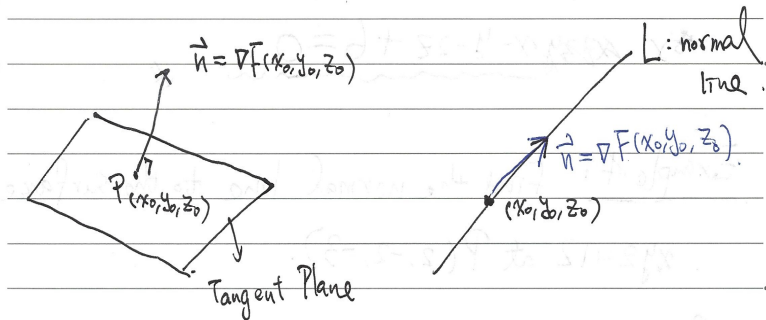 n⃗ = ∇F(x₀,y₀,z₀)
P(x₀,y₀,z₀)
Tangent Plane
L : normal
line.
n⃗ = ∇F(x₀,y₀,z₀).
(x₀,y₀,z₀)